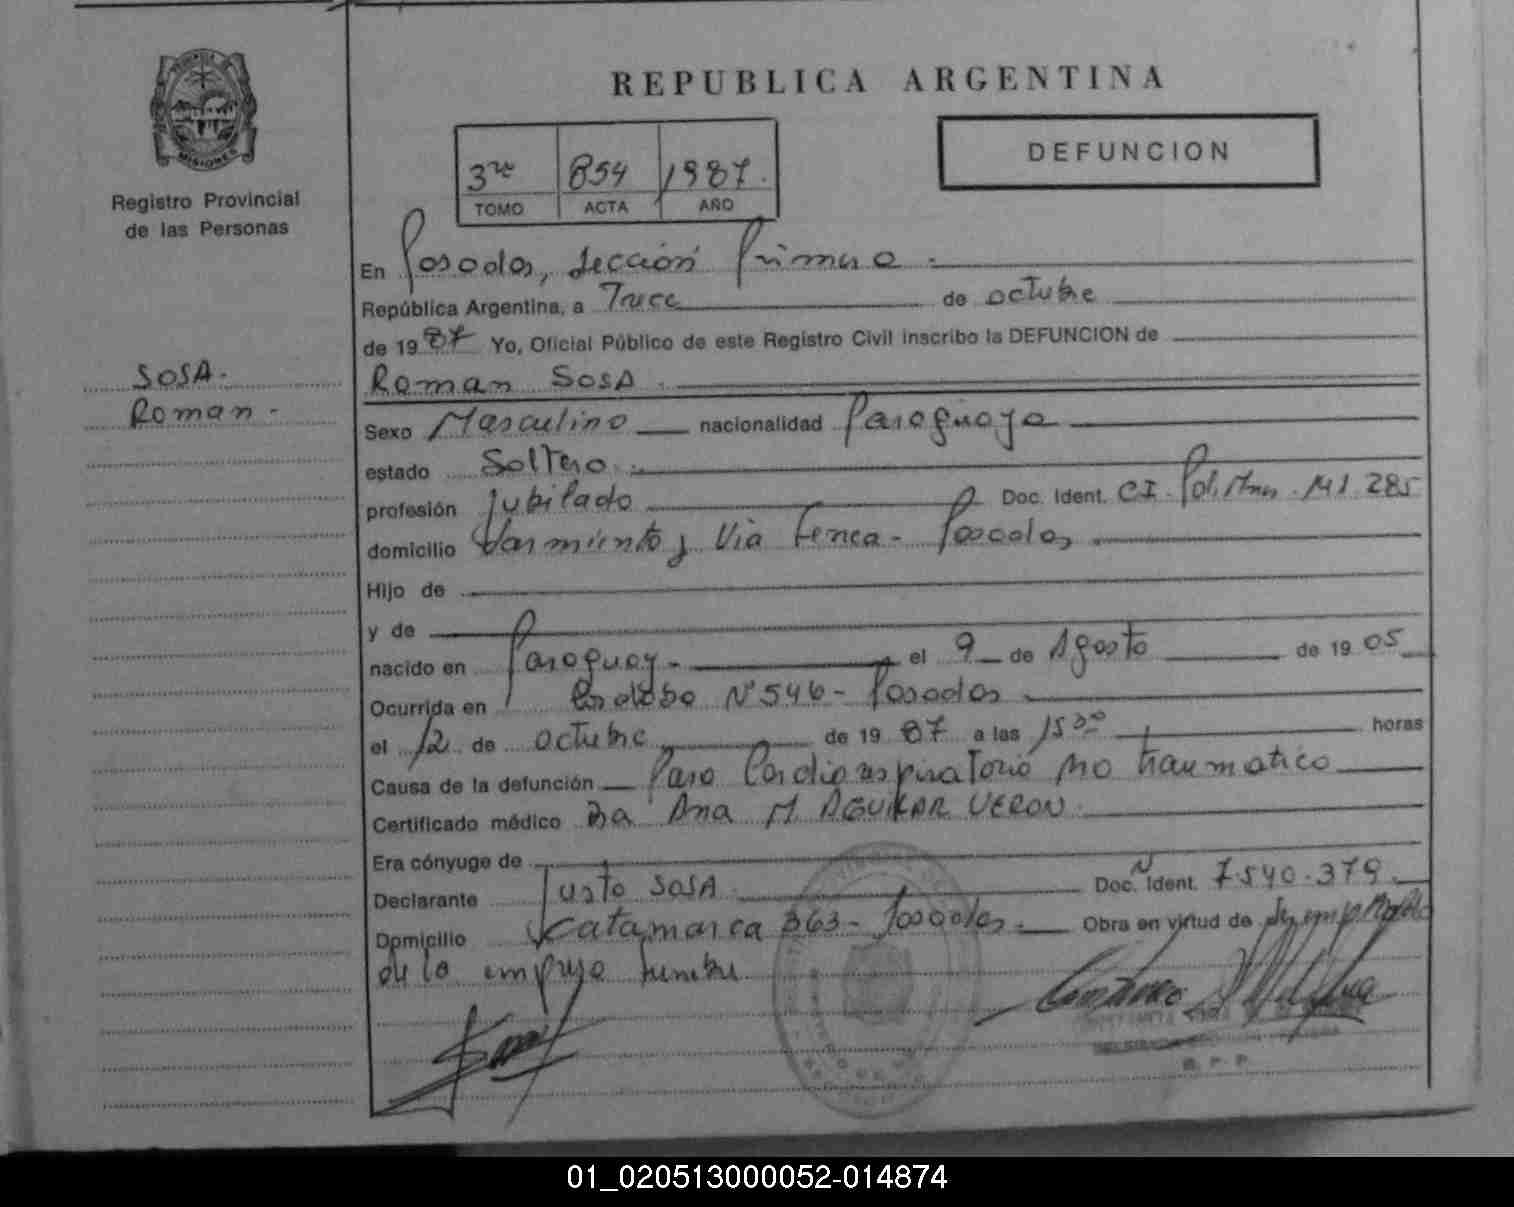 REPUBLICA ARGENTINA
PROVINCIA
MISIONES
Registro Provincial
de las Personas
3ro 854 1987.
TOMO ACTA AÑO
DEFUNCION
En Posadas, Sección Primera
República Argentina, a Trece de octubre
de 1987 Yo, Oficial Público de este Registro Civil inscribo la DEFUNCION de
SOSA.
Roman -
Roman SOSA
Sexo Masculino nacionalidad Paraguaya
estado Soltero
profesión Jubilado Doc. Ident. CI. Pol. Mnes. 141.285
domicilio Sarmiento y Via Ferrea - Posadas
Hijo de
y de
nacido en Paraguay - el 9 de Agosto de 1905
Ocurrida en Cordoba Nº 546 - Posadas
el 12 de octubre de 1987 a las 15 30 horas
Causa de la defunción Paro Cardiorespiratorio no traumatico
Certificado médico Dra Ana M. AGUILAR VERON.
Era cónyuge de
Declarante Justo SOSA Doc. Ident. 7.540.379
Domicilio Catamarca 363 - Posadas Obra en virtud de
de la empresa funebre
01_020513000052-014874